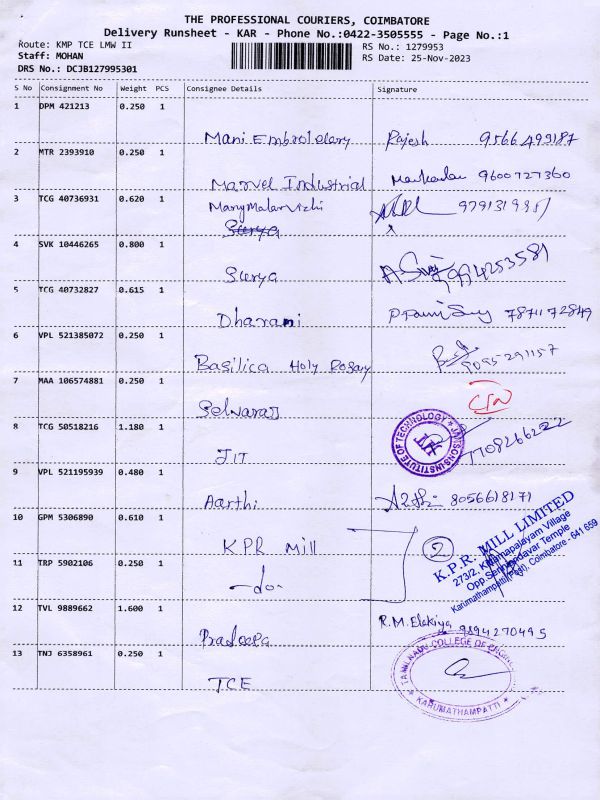 THE PROFESSIONAL COURIERS, COIMBATORE
Delivery Runsheet - KAR - Phone No.:0422-3505555 - Page No.:1
Route: KMP TCE LMW II
RS No.: 1279953
Staff: MOHAN
RS Date: 25-Nov-2023
DRS No.: DCJB127995301
S No Consignment No Weight PCS Consignee Details Signature
1 DPM 421213 0.250 1
Mani Embroidery Rajesh 9566499187
2 MTR 2393910 0.250 1
Marvel Industrial 9600727360
3 TCG 40736931 0.620 1
Manymalarvizhi
Surya
4 SVK 10446265 0.800 1
Surya 994253581
5 TCG 40732827 0.615 1
Dharani 7871172849
6 VPL 521385072 0.250 1
Basilica Holy Rosary 9095291157
7 MAA 106574881 0.250 1
Selvaraj
8 TCG 50518216 1.180 1
JANSONS INSTITUTE OF TECHNOLOGY
JIT
JIT 7708266222
9 VPL 521195939 0.480 1
Aarthi 8056618171
10 GPM 5306890 0.610 1
KPR Mill 2
K.P.R. MILL LIMITED
273/2, Village
Opp. Temple
Karumathampatti Coimbatore - 641 659
11 TRP 5902106 0.250 1
-do-
12 TVL 9889662 1.600 1
Pradeepa R.M. Elakiya 9894270495
13 TNJ 6358961 0.250 1
TAMILNADU COLLEGE OF
KARUMATHAMPATTI
TCE